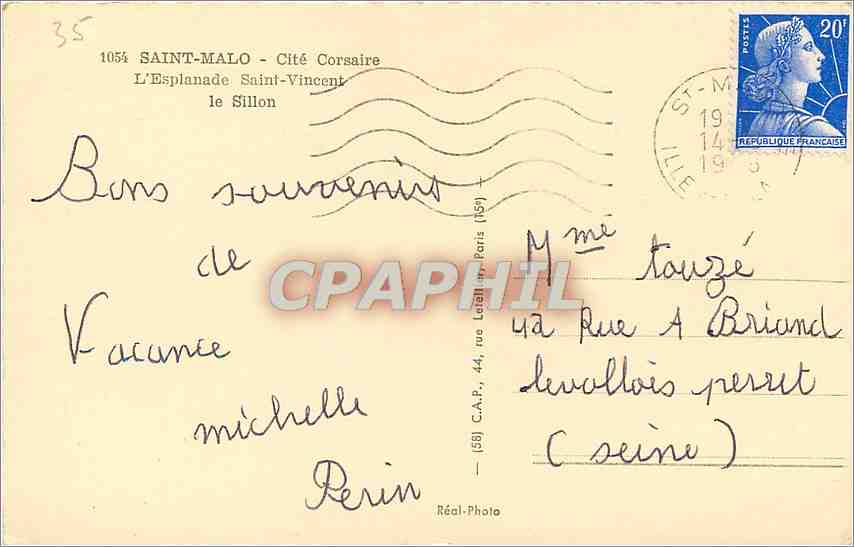 35
1054 SAINT-MALO - Cité Corsaire
L'Esplanade Saint-Vincent
le Sillon
POSTES
20F
REPUBLIQUE FRANÇAISE
ST-M
19
14
19 5
ILLE
Bons souvenirs
de
Vacance
michelle
Perin
CPAPHIL
— (58) C.A.P., 44, rue Letellier, Paris (15e) —
Réal-Photo
Mme touzé
42 Rue A Briand
levallois perret
(seine)